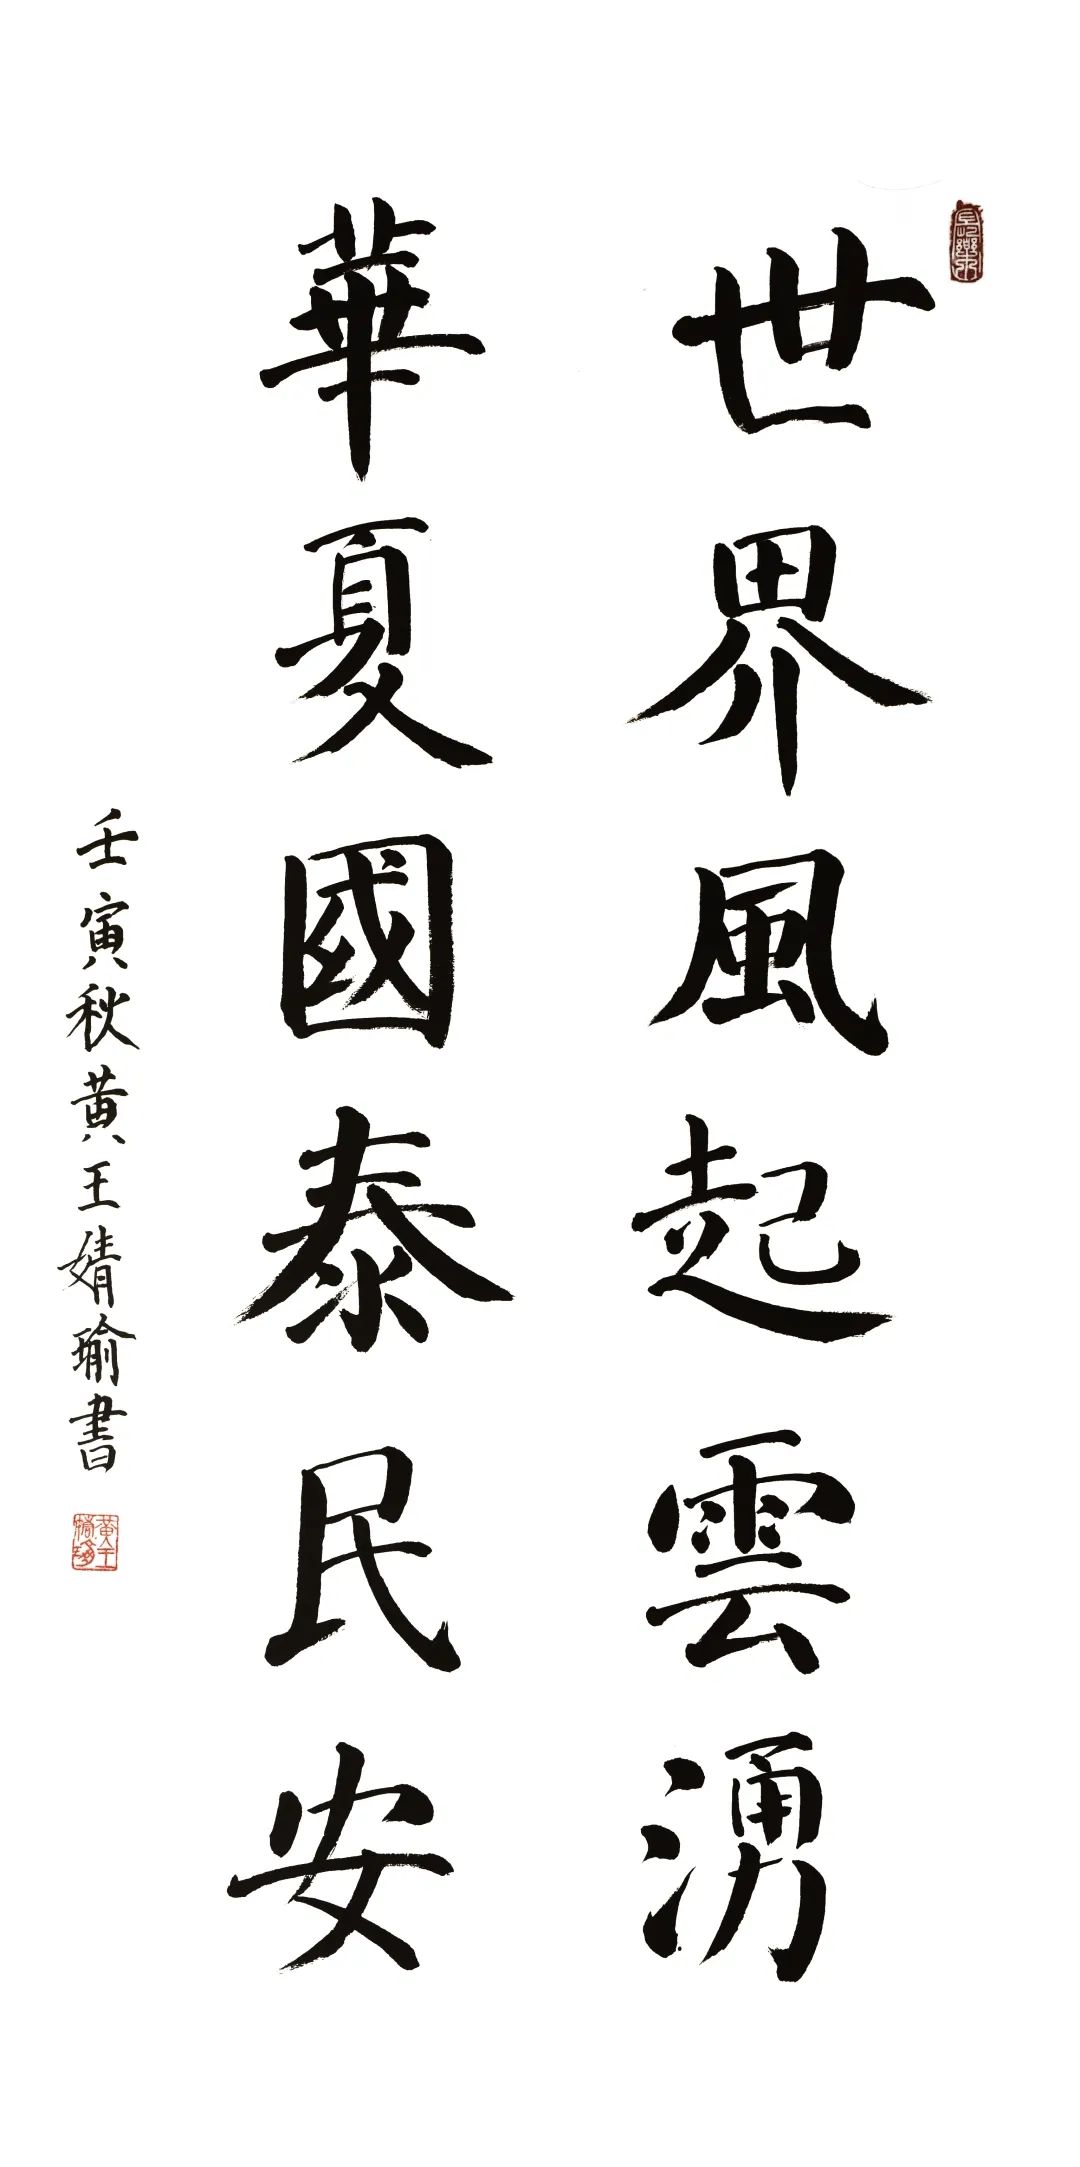 世界風起雲湧
華夏國泰民安
壬寅秋黄王婧瑜書
黄王婧瑜